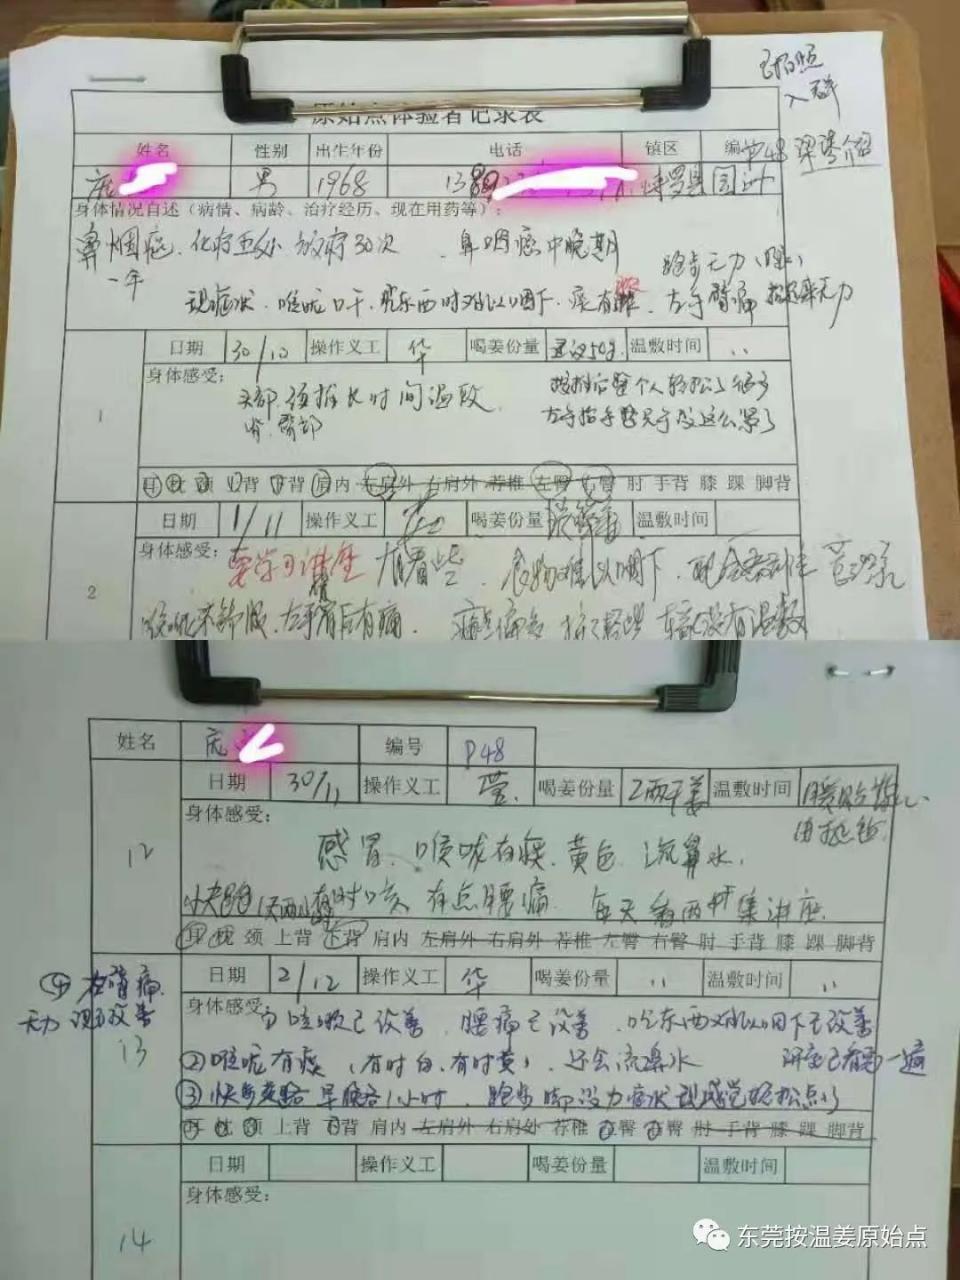 已拍照
入群
原始点体验者记录表
姓名 性别 出生年份 电话 镇区 编 P48 梁琴介绍
庞 男 1968 博罗县园洲
身体情况自述（病情、病龄、治疗经历、现在用药等）：
鼻咽癌、化疗五次 放疗30次 、鼻咽癌中晚期
一年 跑步无力（脚）
现症状、喉咙口干、吃东西时难以咽下、痰有 左手臂痛 抬起来无力
日期 30/10 操作义工 华 喝姜份量 建议50g. 温敷时间 ..
1
身体感受：
头部、颈椎长时间温敷、
背、臀部
按推后整个人轻松了很多
左手抬手臂见于没这么紧了
耳 枕 颈 上背 下背 肩内 左肩外 右肩外 荐椎 左臀 右臀 肘 手背 膝 踝 脚背
日期 1/11 操作义工 喝姜份量 温敷时间
2
身体感受：
要学习讲座 有看些、食物难以咽下、
喉咙不舒服、左手臂后有痛、
姓名 庞 编号 P48
日期 30/11 操作义工 莹. 喝姜份量 2两干姜 温敷时间
12
身体感受：
感冒、喉咙有痰、黄色、流鼻水、
快走路1天两小时 有时咳 有点腰痛、每天看两集讲座
耳 枕 颈 上背 下背 肩内 左肩外 右肩外 荐椎 左臀 右臀 肘 手背 膝 踝 脚背
日期 2/12 操作义工 华 喝姜份量 .. 温敷时间 ..
④ 左臂痛
无力 现改善
13
身体感受：
①咳嗽已改善、腰痛已改善、吃东西难以咽下已改善
②喉咙有痰、（有时白、有时黄）、还会流鼻水 讲座已看完一遍
③快步走路 早晚各1小时、跑步脚没力症状现感觉轻松点了
耳 枕 颈 上背 下背 肩内 左肩外 右肩外 荐椎 左臀 右臀 肘 手背 膝 踝 脚背
日期 操作义工 喝姜份量 温敷时间
14
身体感受：
东莞按温姜原始点